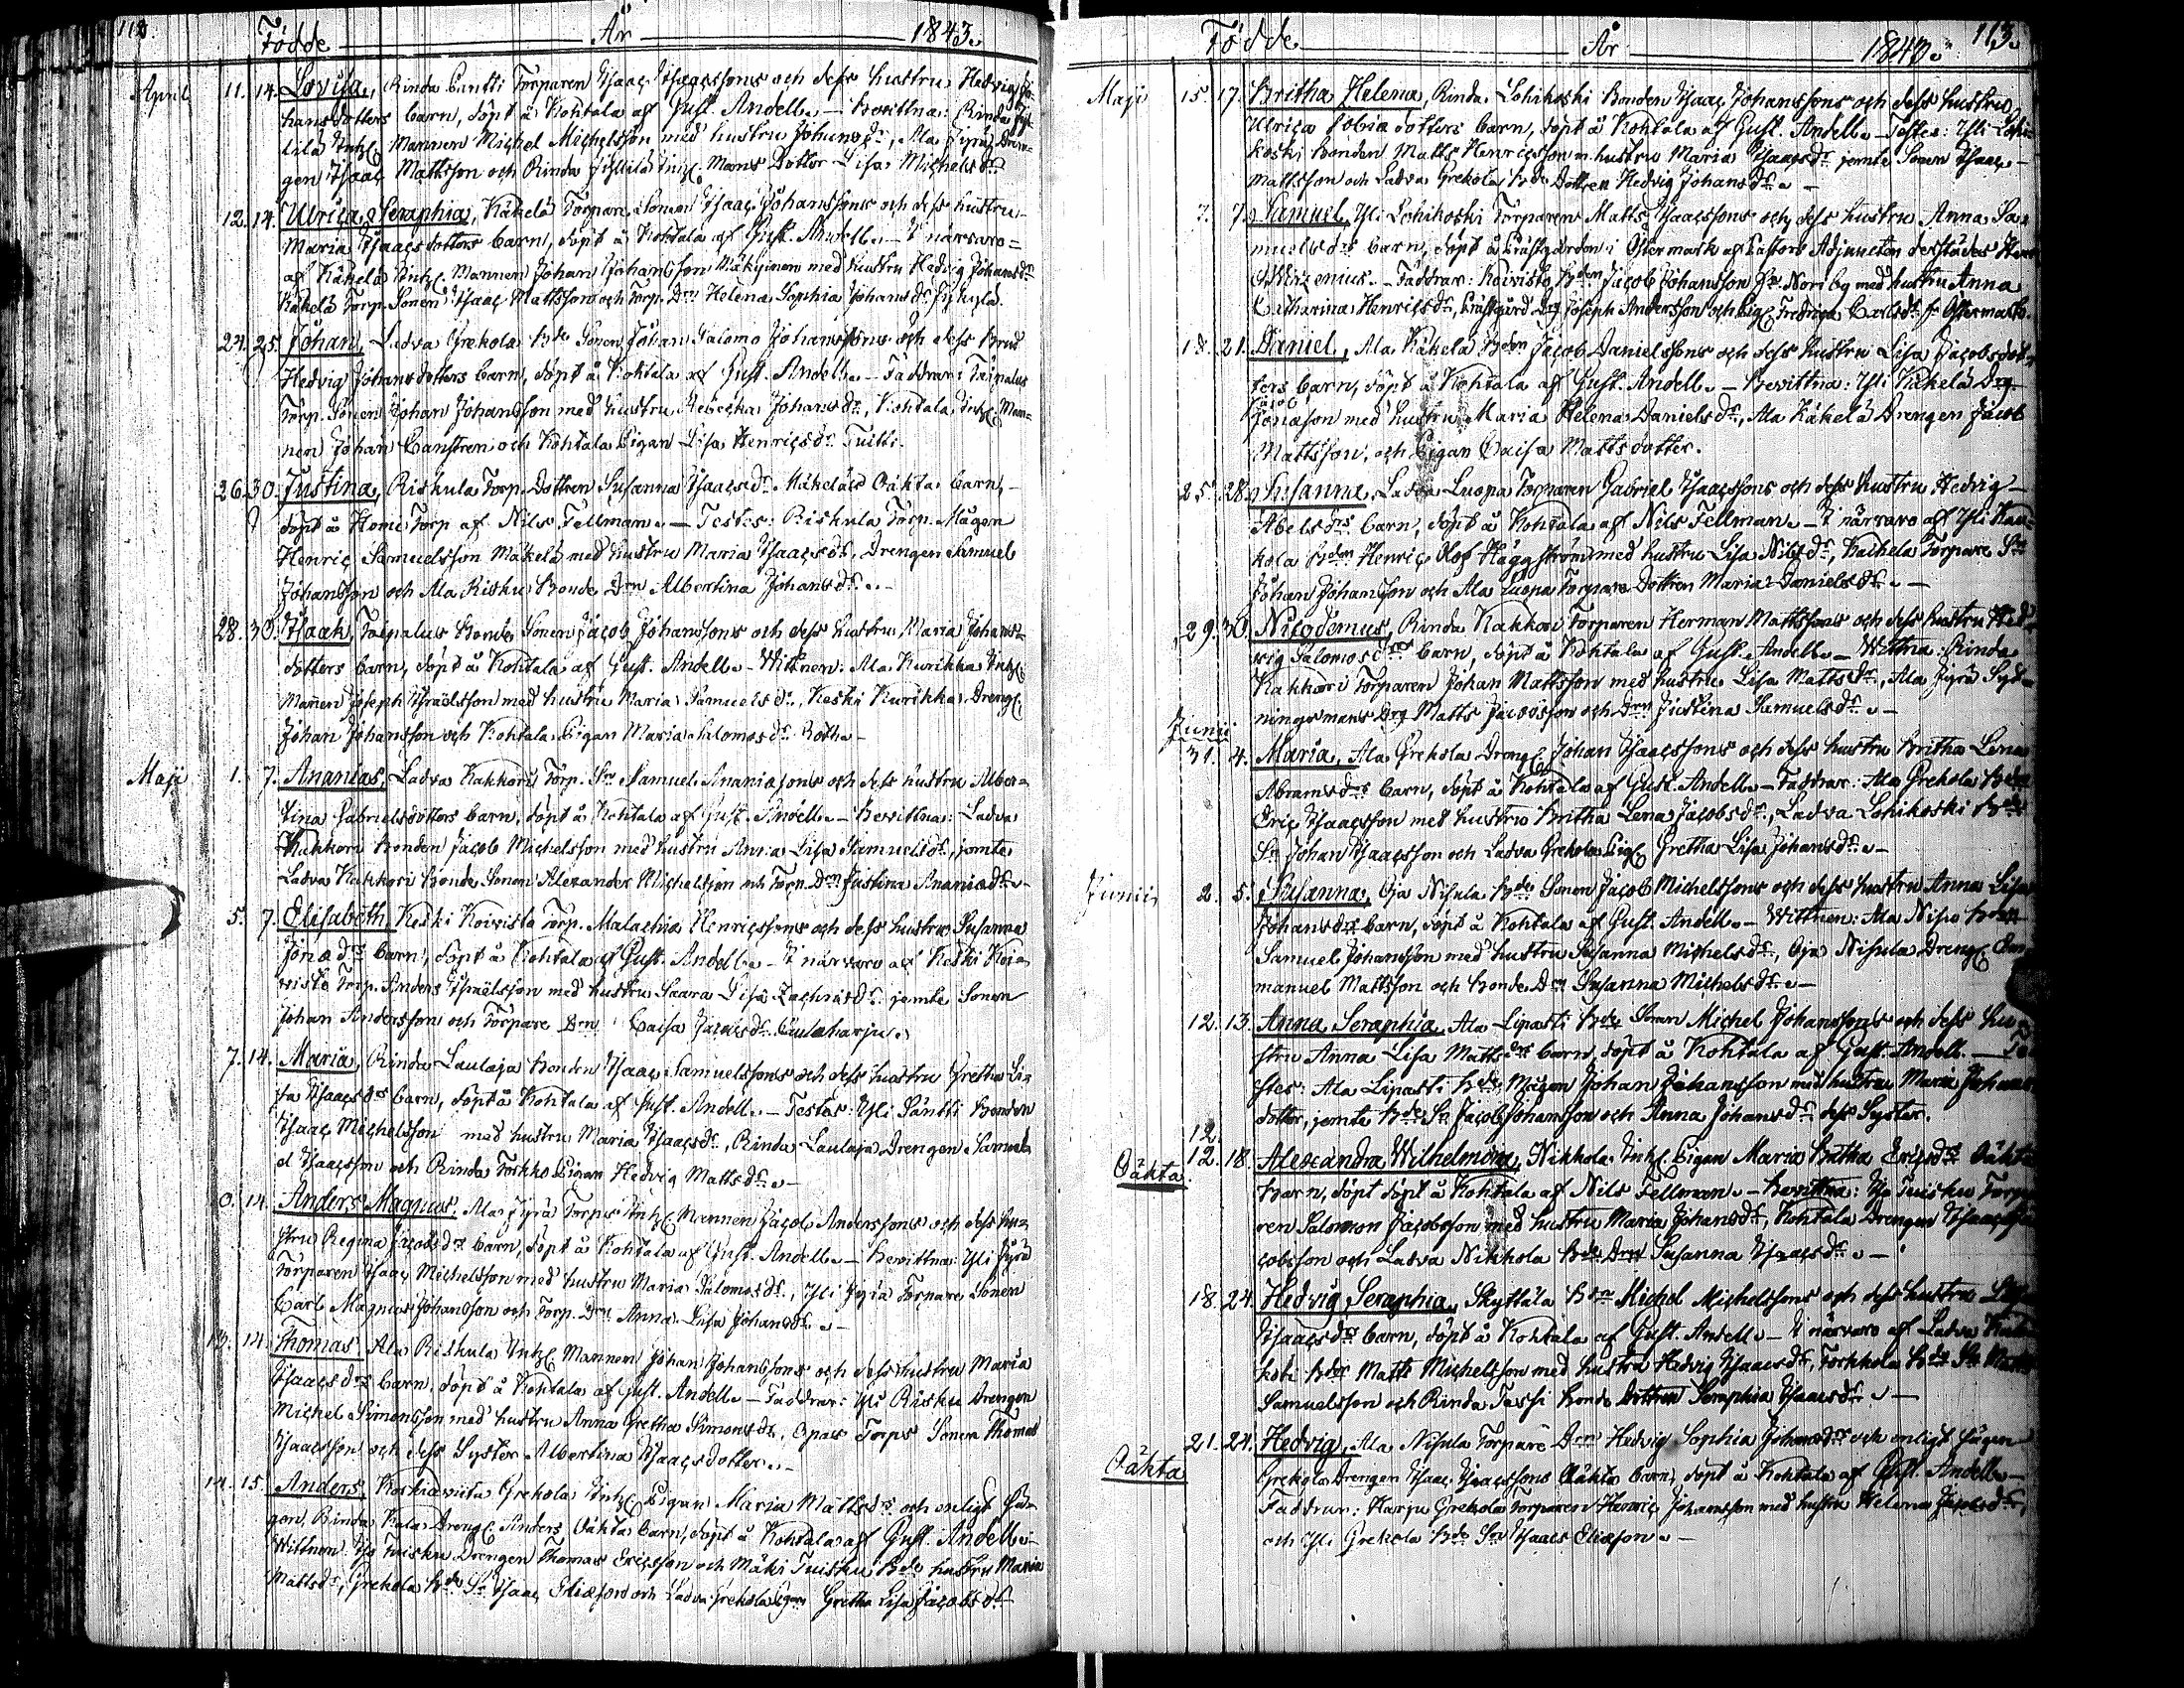 112
Födde År 1843.
April 11. 14. Lovisa, Rinda Santti Torparen Isaac Isaacssons och dess hustru Hedvig Jo-
hansdotters barn, döpt å Kohtala af Gust. Andell. – Bevittna: Rinda
Inhs Mannen Michel Michelsson med hustru Johansdr, Ala Jyrä Dren-
gen Isaac Mattsson och Rinda Inhs Mans Dotter Lisa Michelsdr
12. 14. Ulrica Seraphia, Käkelä Torpare Sonen Isaac Johanssons och dess hustru
Maria Isaacsdotters barn, döpt å Kohtala af Gust. Andell. – I närvaro
af Käkelä Inhs Mannen Johan Johansson Mäkynen med hustru Hedvig Johansdr
Käkelä Torp. Sonen Isaac Mattsson och Torp. Drn Helena Sophia Johansdr
24. 25. Johan, Ladva Grekola Bde Sonen Johan Salomo Johanssons och dess Brud
Hedvig Johansdotters barn, döpt å Kohtala af Gust. Andell. – Faddrar: Taipalus
Torp. Sonen Johan Johansson med hustru Rebecka Johansdr, Kohtala Inhs Man-
nen Johan Canstren och Kohtala Pigan Lisa Henricsdr Tuitti.
26. 30. Justina, Riskula Torp. Dottren Susanna Isaacsdr Mäkeläs Oäkta barn,
döpt å Torp af Nils Fellman. – Testes: Riskula Torp. Mågen
Henric Samuelsson Mäkelä med hustru Maria Isaacsdr, Drengen Samuel
Johansson och Ala Risku Bonde Drn Albertina Johansdr. –
28. 30. Isaak, Taipalus Bonde Sonen Jacob Johanssons och dess hustru Maria Johans-
dotters barn, döpt å Kohtala af Gust. Andell. – Wittnen: Ala Kurikka Inhs
Mannen Joseph Israelsson med hustru Maria Samuelsdr, Keski Kurikka Dreng
Johan Johansson och Kohtala Pigan Maria Salomosdr –
Maji 1. 7. Ananias, Ladva Kakkori Torp. Sn Samuel Ananiasons och dess hustru Alber-
tina Gabrielsdotters barn, döpt å Kohtala af Gust. Andell. – Bevittna: Ladva
Kakkori Bonden Jacob Michelsson med hustru Anna Lisa Samuelsdr, jemte
Ladva Kakkori Bonde Sonen Alexander Michelsson och Torp. Drn Justina Ananiædr. –
5. 7. Elisabeth, Keski Koivisto Torp. Malachia Henricssons och dess hustru Susanna
Jonædrs barn, döpt å Kohtala af Gust. Andell. – I närvaro af Keski Koi-
visto Torp. Anders Israelsson med hustru Saara Lisa Zachrisdr jemte Sonen
Johan Andersson och Torpare Drn Caisa Jacobsdr
7. 14. Maria, Rinda Laulaja Bonden Isaac Samuelssons och dess hustru Gretha Li-
sa Isaacsdrs barn, döpt å Kohtala af Gust. Andell. – Testes: Yli Säntti Bonden
Isaac Michelsson med hustru Maria Isaacsdr, Rinda Laulaja Drengen Samu-
el Isaacsson och Rinda Torkko Pigan Hedvig Mattsdr. –
14. Anders Magnus, Ala Jyrä Torps Inhs Mannen Jacob Anderssons och dess hu-
stru Regina Jacobsdrs barn, döpt å Kohtala af Gust. Andell. – Bevittna: Yli Jyrä
Torparen Isaac Michelsson med hustru Maria Salomosdr, Yli Jyrä Torpare Sonen
Carl Magnus Johansson och Torp. Drn Anna Lisa Johansdr. –
13. 14. Thomas, Ala Riskula Inhs Mannen Johan Johanssons och dess hustru Maria
Isaacsdrs barn, döpt å Kohtala af Gust. Andell. – Faddrar: Yli Risku Drengen
Michel Simonsson med hustru Anna Gretha Simonsdr, Opas Torps Sonen Thomas
Isaacsson och dess Syster Albertina Isaacsdotter. –
14. 15. Anders, Grekola Inhs Pigan Maria Mattsdrs och enligt sä-
gen, Rinda Kala Dreng Anders Oäkta barn, döpt å Kohtala af Gust. Andell. –
Wittnen: Tuisku Drengen Thomas Ericsson och Mäki Tuisku Bde hustru Maria
Mattsdr, Grekola Bde Sn Isaac Eliæson och Ladva Grekola Pigan Gretha Lisa Jacobsdr
113.
Födde År 1843.
Maji 15. 17. Britha Helena, Rinda Lohikoski Bonden Isaac Johanssons och dess hustru
Ulrica Tobiædotters barn, döpt å Kohtala af Gust. Andell. – Testes: Yli Lohi-
koski Bonden Matts Henricsson m. hustru Maria Isaacsdr jemte Sonen Isaac
Mattsson och Ladva Grekola Bde Dottren Hedvig Johansdr. –
7. 7. Samuel, Yli Lohikoski Torparen Matts Isaacssons och dess hustru Anna Sa-
muelsdrs barn, döpt å Prästgården i Östermark af Pastors Adjuncten derstädes
Wirzenius. – Faddrar: Koivisto Bden Jacob Johansson fr. Norrby med hustru Anna
Catharina Henricsdr, Prästgård Drg Joseph Andersson och Pig Fredrica Carlsdr fr Östermark.
18. 21. Daniel, Ala Käkelä Bden Jacob Danielssons och dess hustru Lisa Jacobsdot-
ters barn, döpt å Kohtala af Gust. Andell. – Bevittna: Yli Käkelä Drg
Jacob
Jonæson med hustru Maria Helena Danielsdr, Ala Käkelä Drengen Jacob
Mattsson, och Pigan Caisa Mattsdotter.
25. 28. Susanna, Ladva Luopa Torparen Gabriel Isaacssons och dess hustru Hedvig
Abelsdrs barn, döpt å Kohtala af Nils Fellman. – I närvaro af Yli Kau-
kola Bden Henric Olof Häggström med hustru Lisa Nilsdr, Torpare Sn
Johan Johansson och Ala Luopa Torpare Dottren Maria Danielsdr. –
29. 30. Nicodemus, Rinda Kakkori Torparen Herman Mattssons och dess hustru Hed-
vig Salomosdrs barn, döpt å Kohtala af Gust. Andell. – Wittna: Rinda
Kakkori Torparen Johan Mattsson med hustru Lisa Mattsdr, Ala Jyrä Syd-
ningsmans Drg Matts Jacobsson och Drn Justina Samuelsdr. –
Junii
31. 4. Maria, Ala Grekola Dreng Johan Isaacssons och dess hustru Britha Lena
Abramsdrs barn, döpt å Kohtala af Gust. Andell. – Faddrar: Ala Grekola Bden
Eric Isaacsson med hustru Britha Lena Jacobsdr, Ladva Lohikoski Bde
Sn Johan Isaacsson och Ladva Grekola Pig Gretha Lisa Johansdr. –
Junii 2. 5. Susanna, Oja Nisula Bde Sonen Jacob Michelssons och dess hustru Anna Lisa
Johansdrs barn, döpt å Kohtala af Gust. Andell. – Wittnen: Ala Niso Bden
Samuel Johansson med hustru Susanna Michelsdr, Oja Nisula Dreng Em-
manuel Mattsson och Bonde Drn Susanna Michelsdr. –
12. 13. Anna Seraphia, Ala Lipasti Bde Sonen Michel Johanssons och dess hu-
stru Anna Lisa Mattsdrs barn, döpt å Kohtala af Gust. Andell. – Te-
stes: Ala Lipasti Bde Mågen Johan Johansson med hustru Maria Johans-
dotter, jemte Bde Sn Jacob Johansson och Anna Johansdr dess Syster.
12.
Oäkta 12. 18. Alexandra Wilhelmina, Nikkola Inhs Pigan Maria Britha Ericsdrs Oäkta
Barn, döpt döpt å Kohtala af Nils Fellman. – Bevittna: Tuisku Torpa-
ren Salomon Jacobsson med hustru Maria Johansdr, Kohtala Drengen Isaac Ja-
cobsson och Ladva Nikkola Bde Drn Susanna Isaacsdr. –
18. 24. Hedvig Seraphia, Skyttälä Bdn Michel Michelssons och dess hustru
Isaacsdrs barn, döpt å Kohtala af Gust. Andell. – I närvaro af Ladva
Bden Matts Michelsson med hustru Hedvig Isaacsdr, Torkkola Bde Sn Matts
Samuelsson och Rinda Tassi Bonde Dottren Seraphia Isaacsdr. –
Oäkta 21. 24. Hedvig, Ala Nisula Torpare Drn Hedvig Sophia Johansdrs och enligt sägen
Grekola Drengen Isaac Isaacssons Oäkta barn, döpt å Kohtala af Gust. Andell. –
Faddrar: Harju Grekola Torparen Henric Johansson med hustru Helena Jacobsdr,
och Yli Grekola Bde Sn Isaac Eliæson. –